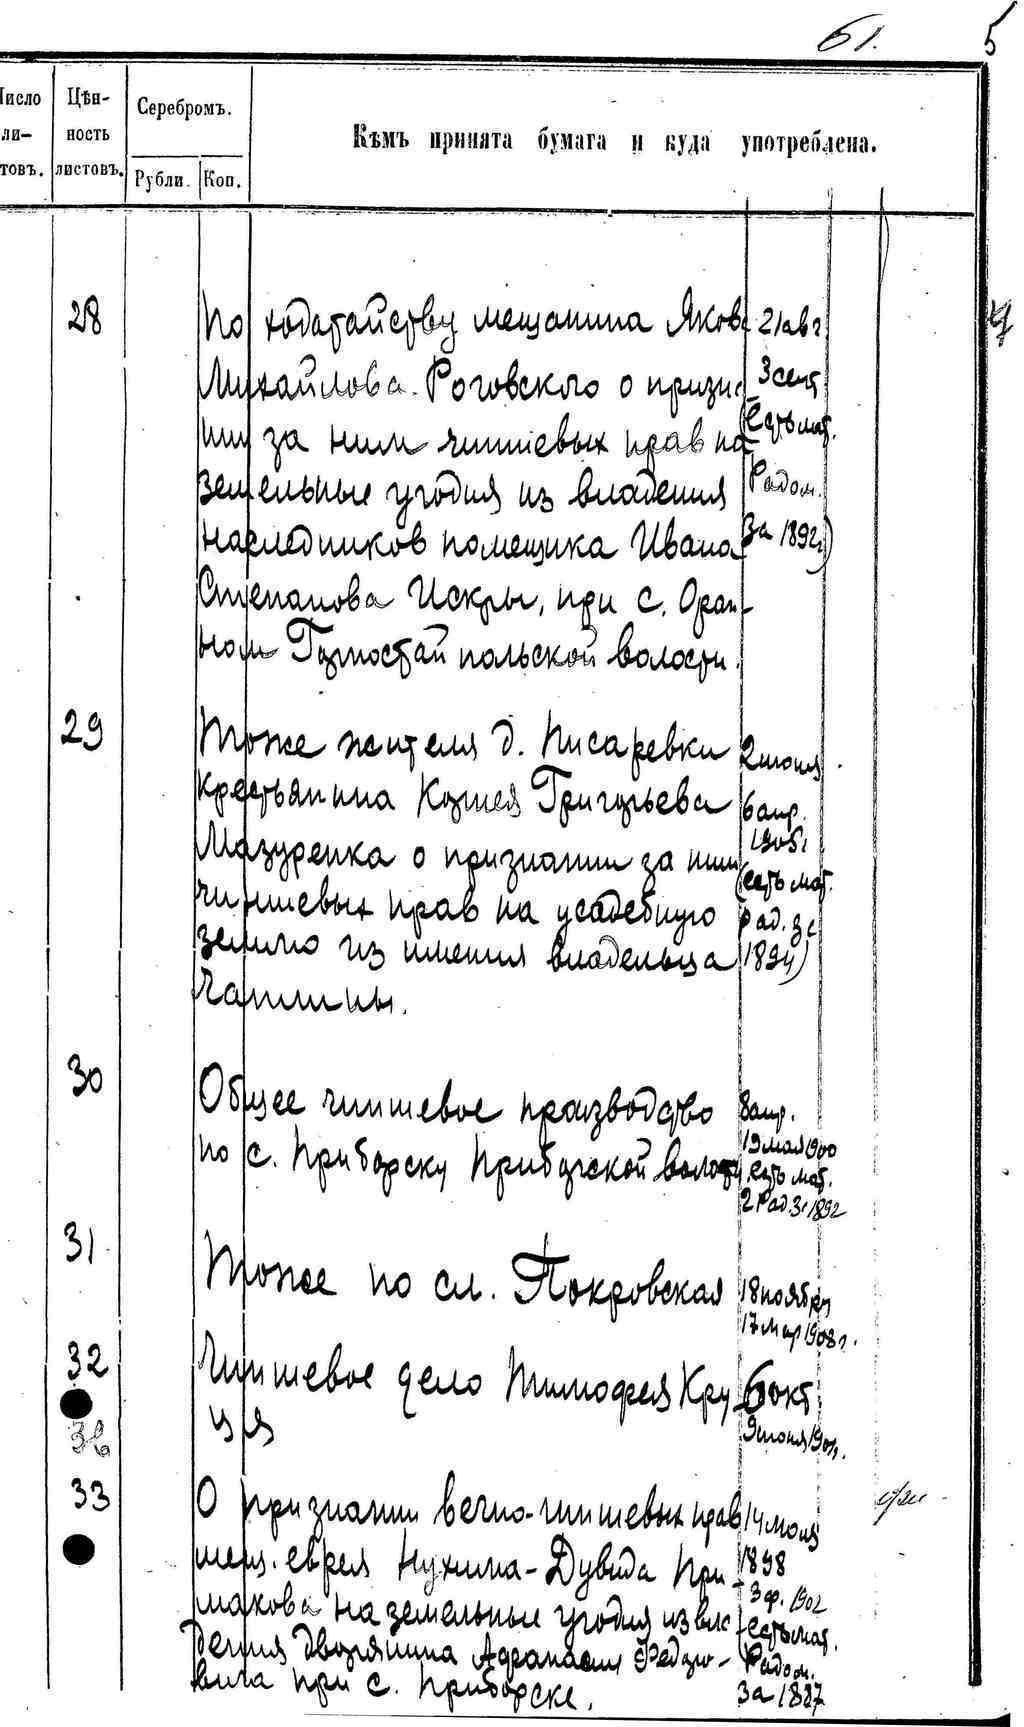 61. 5
Число ли-товъ.
Цѣн-ность листовъ.
Серебромъ.
Рубли. Коп.
Кѣмъ принята бумага и куда употреблена.
28 По ходатайству мещанина Якова 21 авг
Михайлова Роговского о призна- 3 сент
нии за ним чиншевых прав на (есть мат.
земельные угодия из владения Радом.
наследников помещика Ивана за 1892г)
Степанова Искры, при с. Оран-
ном Горностайпольской волости.
29 Тоже жителя д. Писаревки 2 июня
крестьянина Кория Григорьева 6 апр.
1905г
Мазуренка о признании за ним (есть мат.
чиншевых прав на усадебную рад. за
землю из имения владельца 1894)
Чаплины.
30 Общее чиншевое производство 8 апр.
19 мая 1900
по с. Приборску Приборской волости есть мат.
2 Рад. за 1892
31 Тоже по сл. Покровская 18 ноября
17 мар 1908 г.
32 Чиншевое дело Тимофея Кру- 6 окт
ця 9 июня 1901г.
33 О признании вечно-чиншевых прав 14 июля
мещ. еврея Нухима-Дувида При- 1898
3 ф. 1902
макова на земельные угодия из вла- (есть мат.
дения дворянина Афанасия Федоро- Радом.
вича при с. Приборске. за 1887